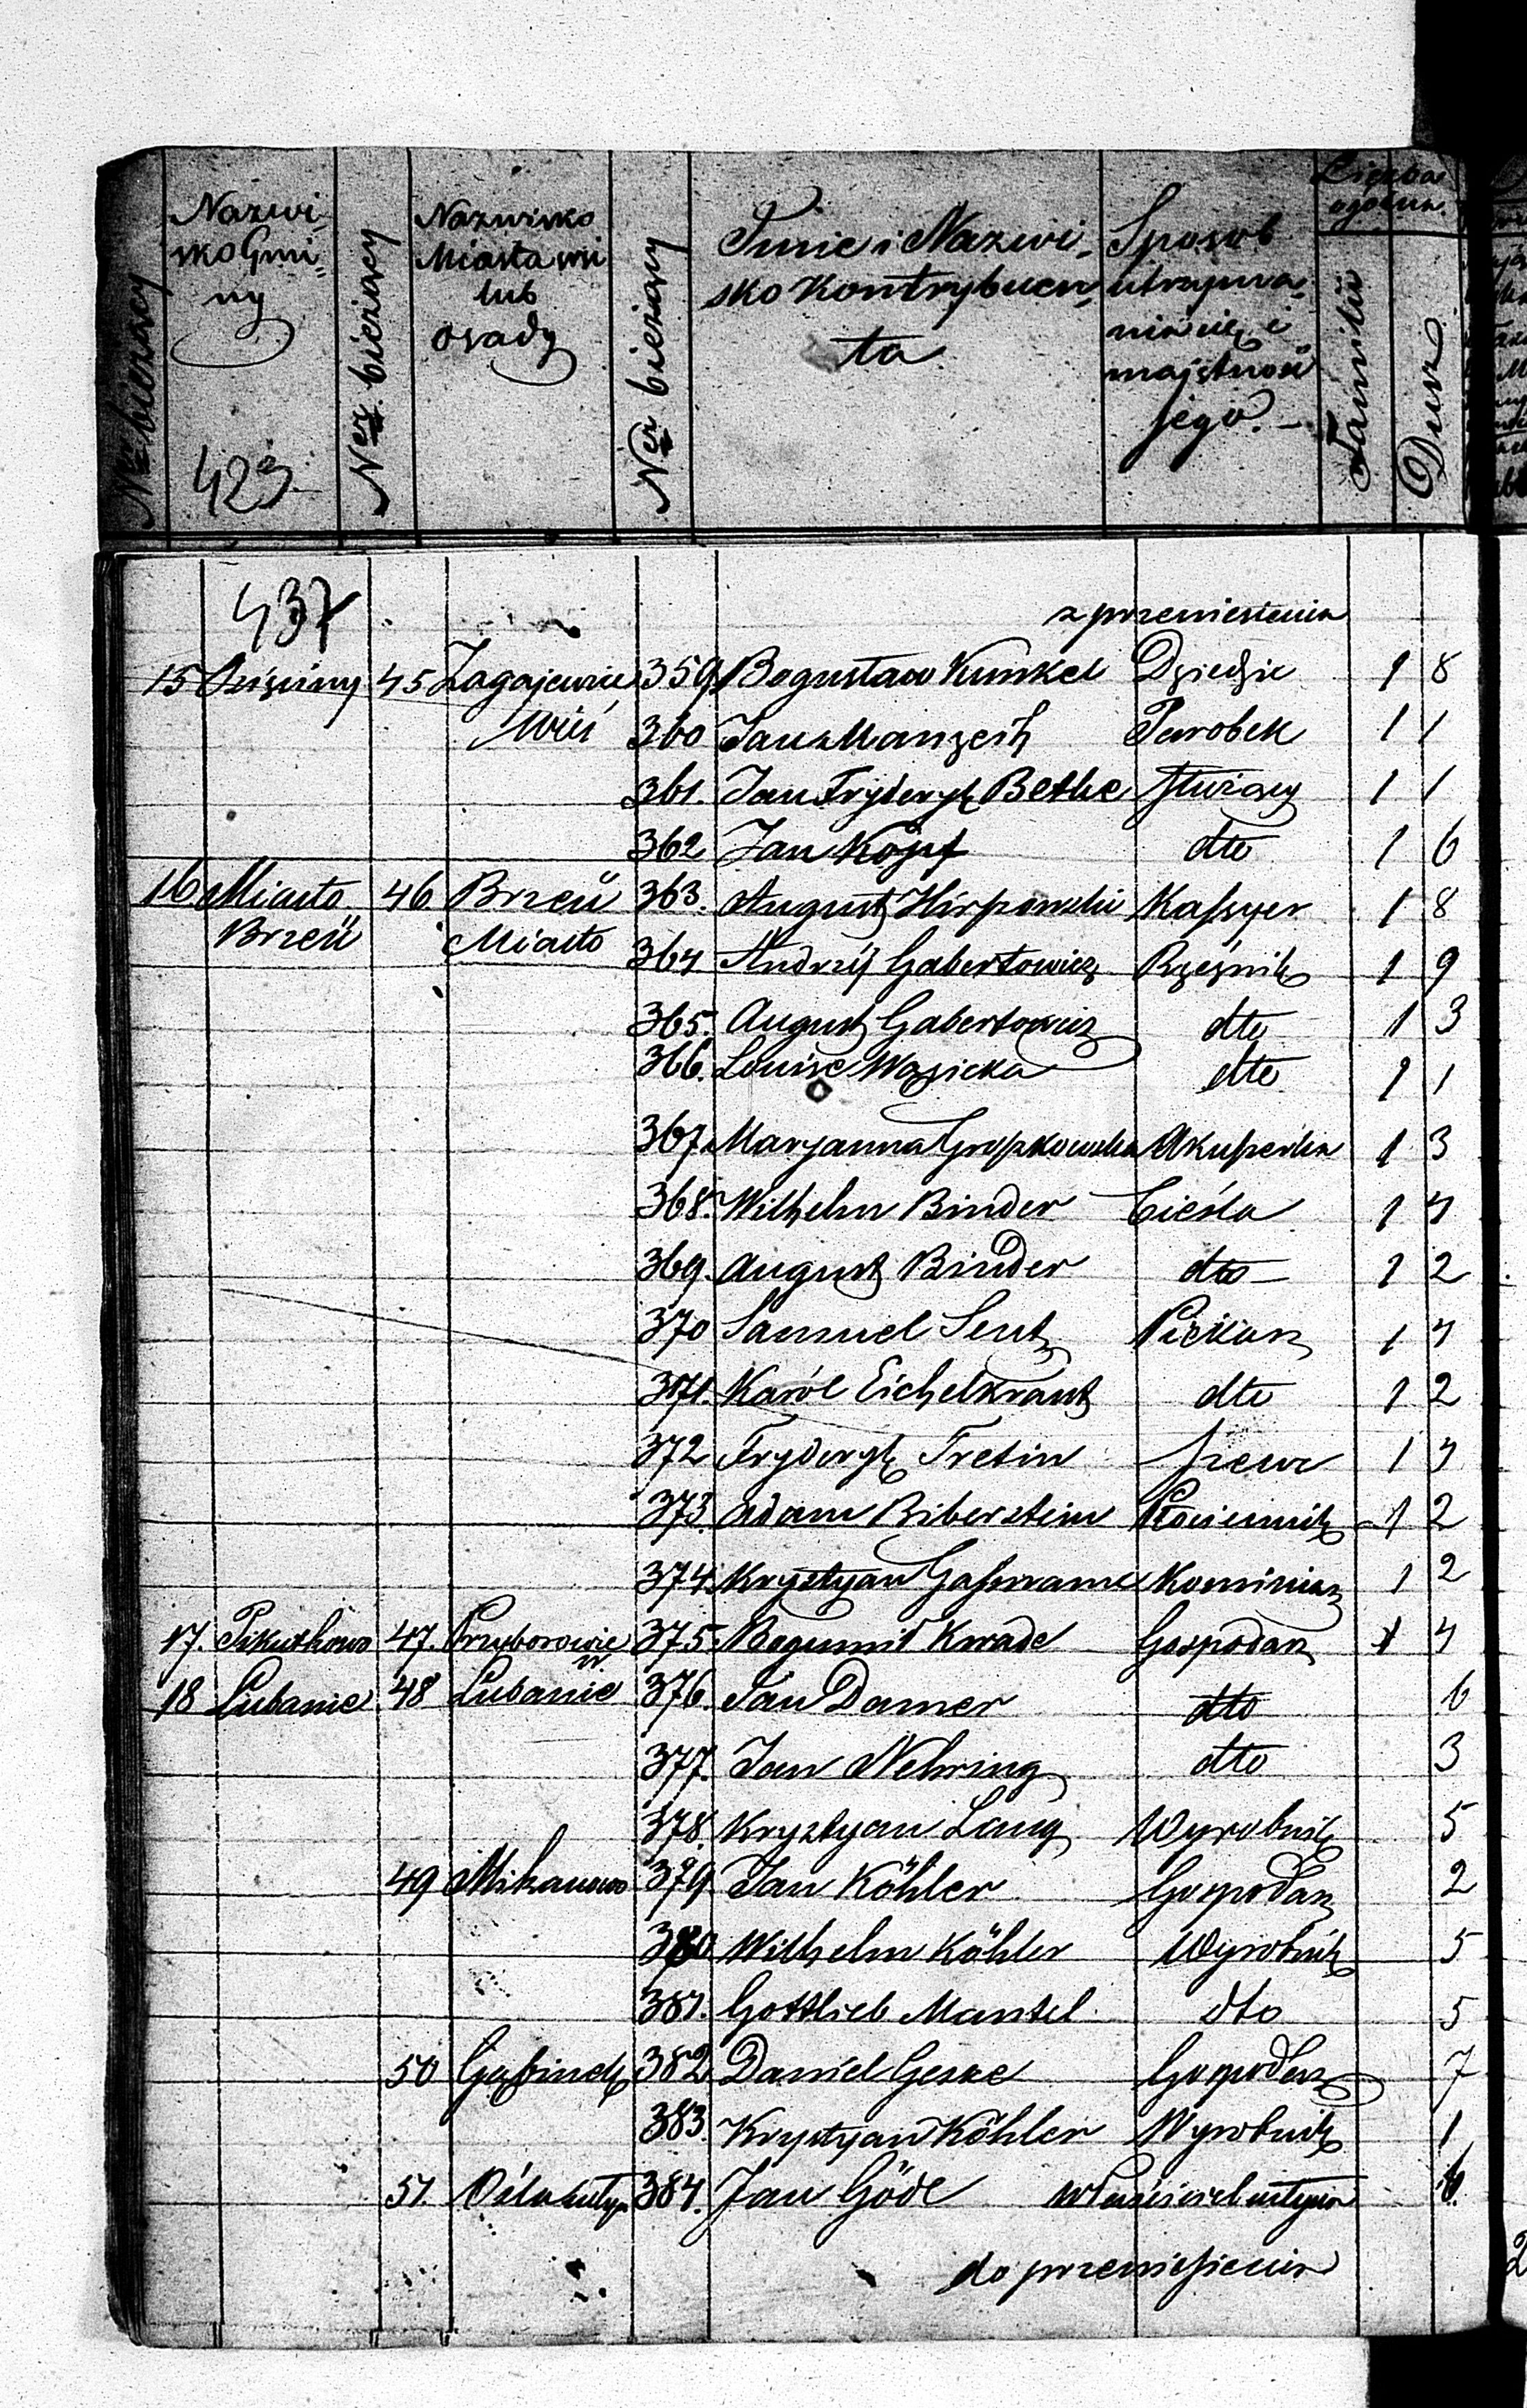 Ner bieżący
Nazwi-
sko Gmi-
ny
423
Ner. bieżący
Nazwisko
Miasta wsi
lub
osady
Ner bieżący
Imie i Nazwi-
sko Kontrybuen-
ta
Sposob
utrzyma-
nia się i
majętność
jego. -
Liczba
ogolna
Familii
Dusz
437
z przeniesienia
15 Osięciny 45 Zagajewice 359 Bogusław Kunkel Dziedzic 1 8
Wieś 360 Jan Manzeih Parobek 1 1
361. Jan Fryderyk Bethe służący 1 1
362 Jan Kopf dto 1 6
16 Miasto 46 Brześć 363. August Kassyer 1 8
Brześć Miasto 364 Andrzej Gabertowicz Rzeźnik 1 9
365. August Gabertowicz dto 1 3
366. Louise Wazicka dto 1 1
367. Maryanna Gropkowska Akuszerka 1 3
368. Wilhelm Binder Cieśla 1 4
369. August Binder dto 1 2
370 Samuel Piekarz 1 4
371. Karól Eichelkraut dto 1 2
372 Fryderyk Tretin szewc 1 4
373. Adam Biberstein 1 2
374. Krystyan Kominiarz 1 2
17. Pikutkowo 47. 375. Bogumił Kwade Gospodarz 1 4
18 Lubanie 48 Lubanie w. 376. Jan Damer dto 6
377. Jan Nehring dto 3
378. Krystyan Lang Wyrobnik 5
49 Mikanowo 379. Jan Köhler Gospodarz 2
380 Wilhelm Köhler Wyrobnik 5
381. Gottlieb Mantel dto 5
50 Gąbinek 382 Daniel Geske Gospodarz 7
383. Krystyan Köhler Wyrobnik 1
51. 384. Jan Göde 6.
do przeniesienia